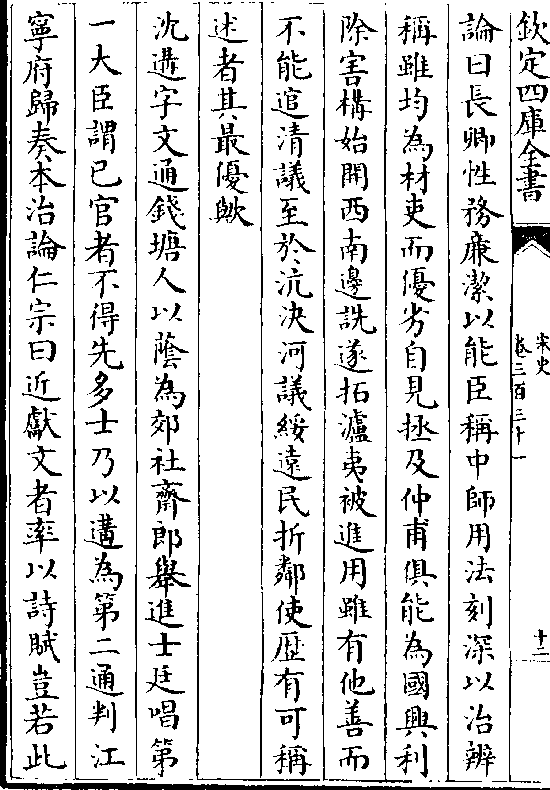 欽定四庫全書
宋史
卷三百三十一
十二
論曰長卿性務廉潔以能臣稱中師用法刻深以治辨
稱雖均為材吏而優劣自見拯及仲甫俱能為國興利
除害構始開西南邊詵遂拓瀘夷被進用雖有他善而
不能逭清議至於沆決河議綏遠民折鄰使歴有可稱
述者其最優歟
沈遘字文通錢塘人以蔭為郊社齋郎舉進士廷唱第
一大臣謂已官者不得先多士乃以遘為第二通判江
寧府歸奏本治論仁宗曰近獻文者率以詩賦豈若此